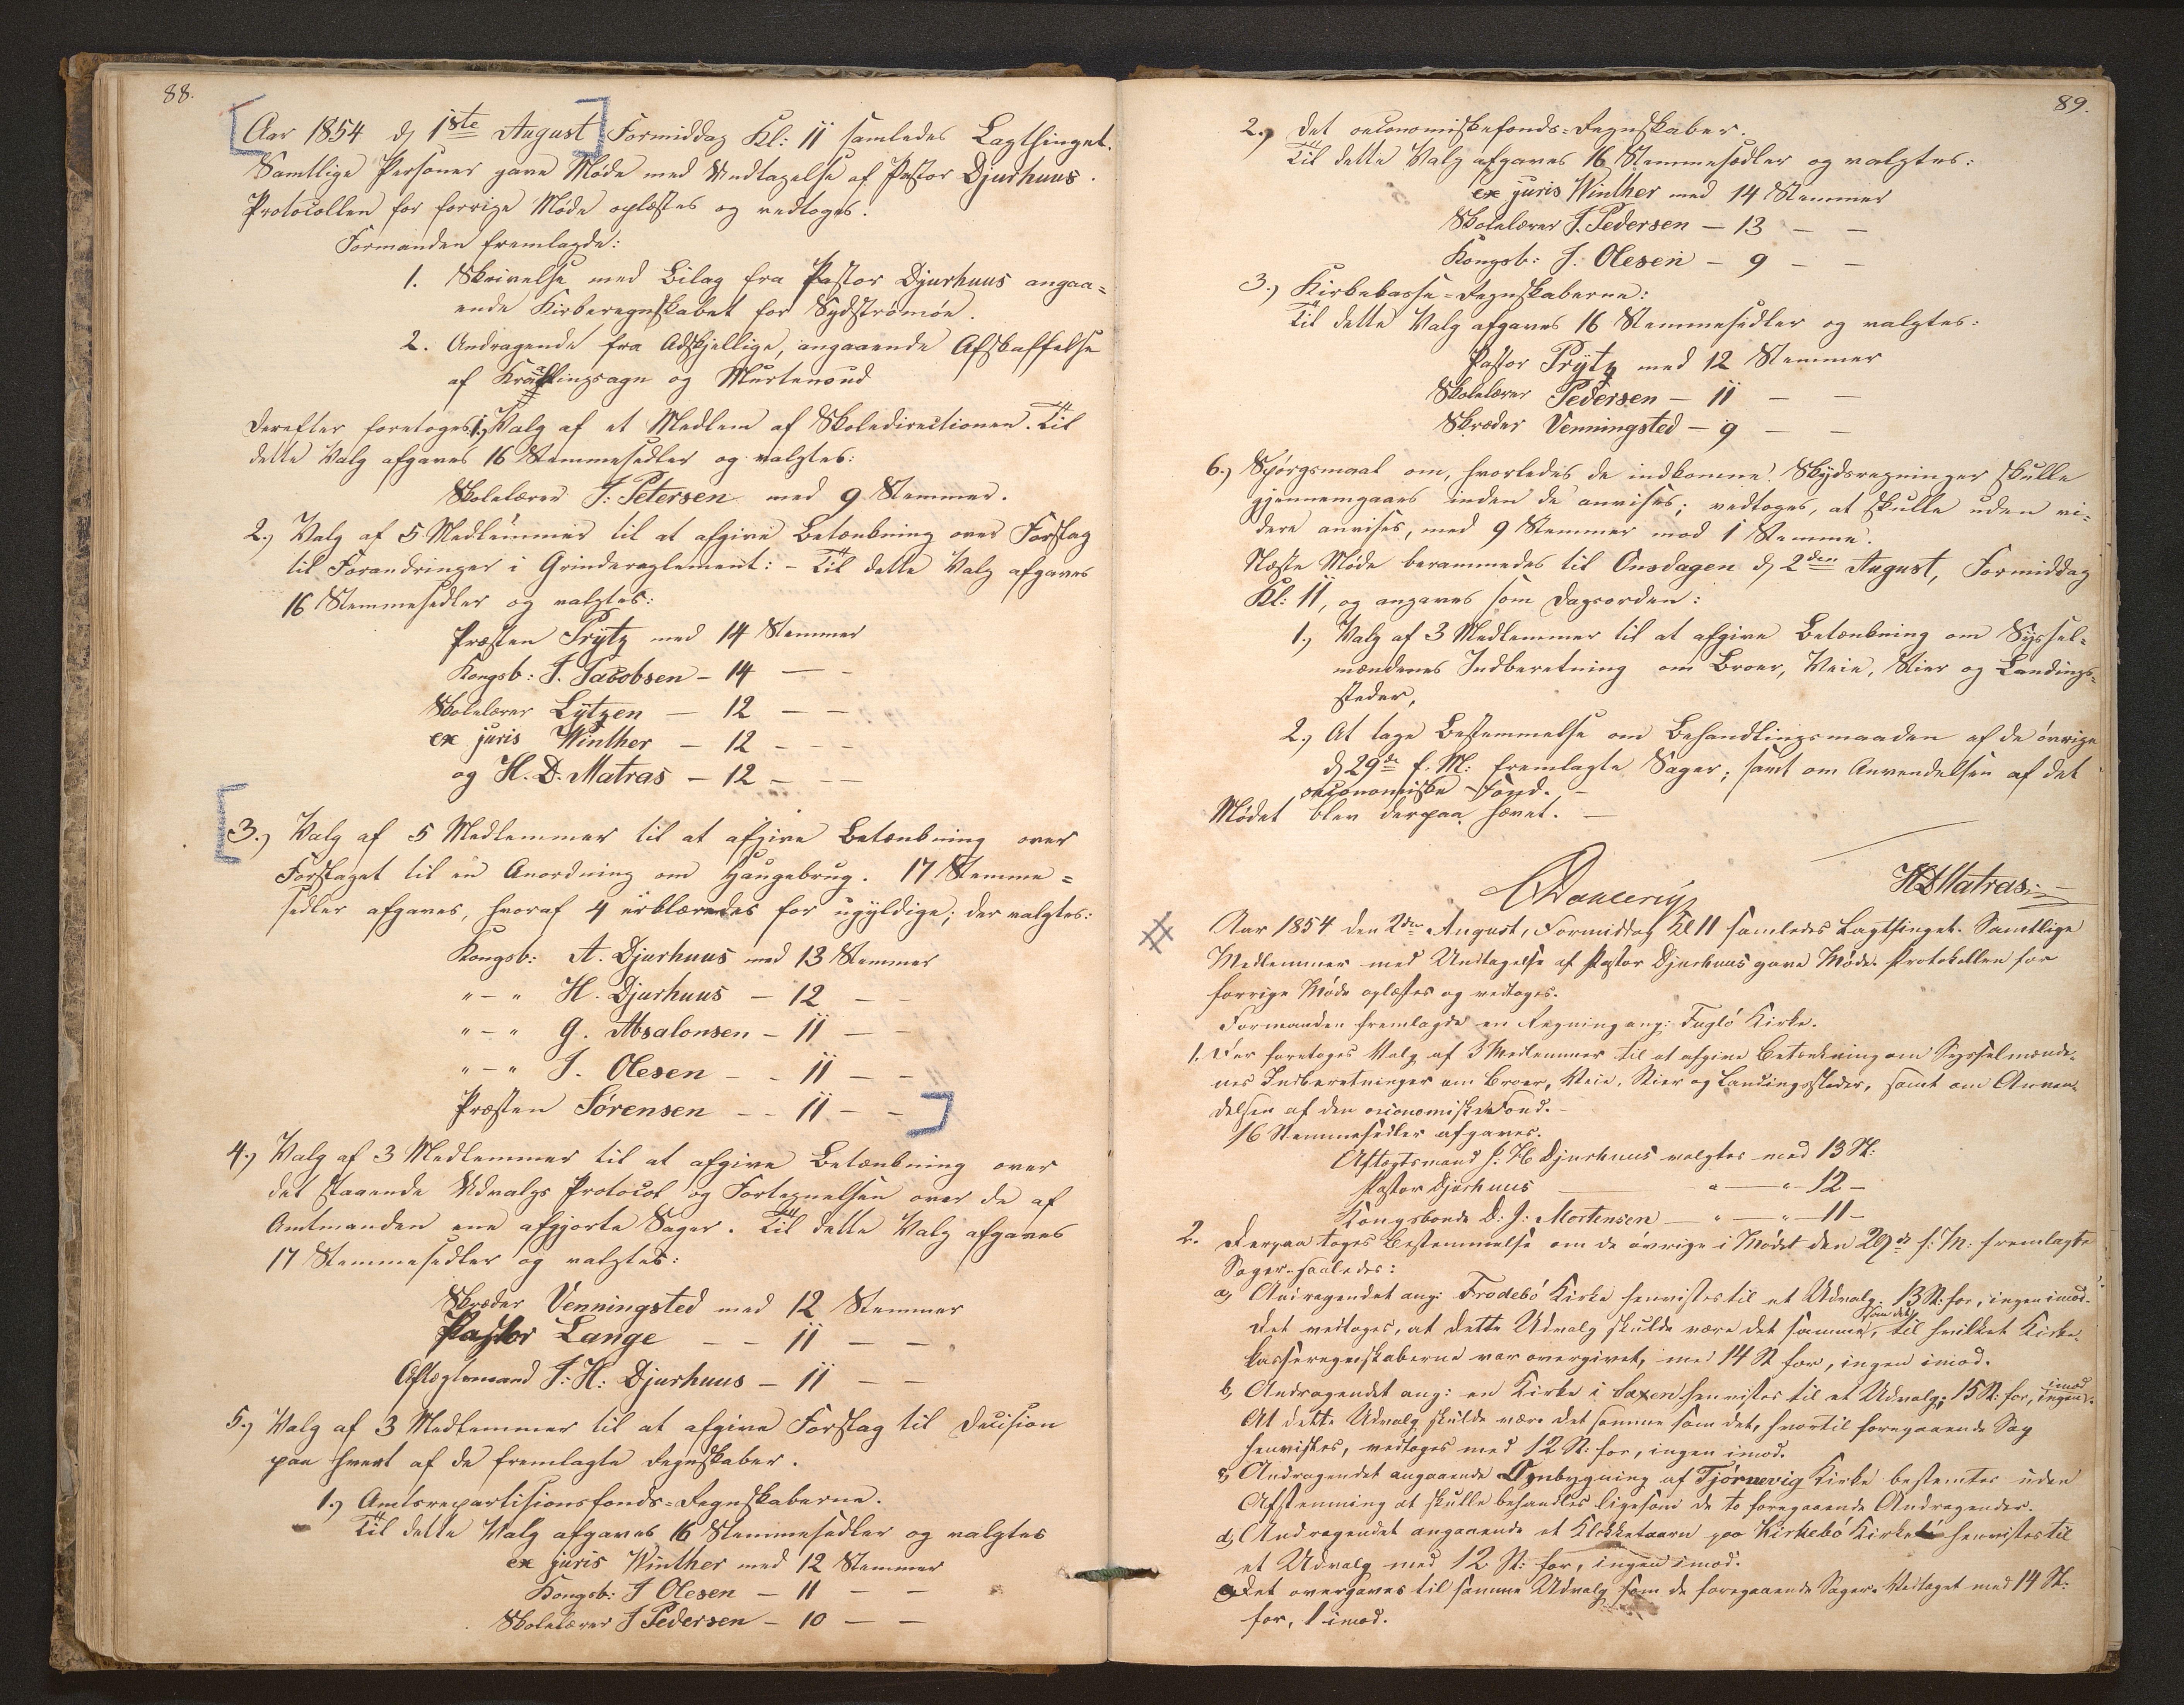 88.
Aar 1854 d 1ste August Formiddag Kl: 11 samledes Lagthinget.
Samtlige Personer gave Møde med Undtagelse af Pastor Djurhuus.
Protocollen for forrige Møde oplæstes og vedtoges.
Formanden fremlagde:
1. Skrivelse med Bilag fra Pastor Djurhuus angaa=
ende Kirkeregnskabet for Sydstrømøe.
2. Andragende fra Adskjellige, angaaende Afskaffelse
af Kræklingsagn og Murtenoud
Derefter foretoges 1, Valg af et Medlem af Skoledirectionen. Til
dette Valg afgaves 16 Stemmesedler og valgtes:
Skolelærer J: Petersen med 9 Stemmer.
2.) Valg af 5 Medlemmer til at afgive Betænkning over Forslag
til Forandringer i Grindereglement: - Til dette Valg afgaves
16 Stemmesedler og valgtes:
Præsten Prytz med 14 Stemmer
Kongsb: J. Jacobsen - 14 — -
Skolelærer Lützen — 12 — —
ex juris Winther — 12 - - -
og H. D. Matras — 12 - —
3.) Valg af 5 Medlemmer til at afgive Betænkning over
Forslaget til en Anordning om Haugebrug. 17 Stemme=
sedler afgaves, hvoraf 4 erklæredes for ugyldige; der valgtes:
Kongsb: A. Djurhuus med 13 Stemmer
" - " H. Djurhuus — 12 — -
" - " G. Absalonsen - 11 — -
" - " J. Olesen - - 11 — -
Præsten Sørensen - - 11 - -
4.) Valg af 3 Medlemmer til at afgive Betænkning over
det staaende Udvalgs Protocol og Fortegnelsen over de af
Amtmanden ene afgjorte Sager. Til dette Valg afgaves
17 Stemmesedler og valgtes:
Skræder Venningsted med 12 Stemmer
Pastor Lange - - 11 — —
Aftægtsmand J: H: Djurhuus - 11 — —
5.) Valg af 3 Medlemmer til at afgive Forslag til Decision
paa hvert af de fremlagte Regnskaber.
1.) Amtsrepartitionsfonds=Regnskaberne.
Til dette Valg afgaves 16 Stemmesedler og valgtes
ex juris Winther med 12 Stemmer
Kongsb: J Olesen — 11 — —
Skolelærer J Pedersen — 10 — —
89.
2.) Det oeconomiskefonds=Regnskaber.
Til dette Valg afgaves 16 Stemmesedler og valgtes:
ex juris Winther med 14 Stemmer
Skolelærer J. Pedersen — 13 - —
Kongsb: J: Olesen — 9 - —
3.) Kirkekasse=Regnskaberne:
Til dette Valg afgaves 16 Stemmesedler og valgtes:
Pastor Prytz med 12 Stemmer
Skolelærer Pedersen — 11 — —
Skræder Venningsted — 9 — —
6.) Spørgsmaal om, hvorledes de indkomne Skydsregninger skulle
gjennemgaaes inden de anvises; vedtoges, at skulle uden vi=
dere anvises, med 9 Stemmer mod 1 Stemme.
Næste Møde berammedes til Onsdagen d 2den August, Formiddag
Kl: 11, og angaves som Dagsorden:
1.) Valg af 3 Medlemmer til at afgive Betænkning om Syssel=
mændenes Indberetning om Broer, Veie, Stier og Landings=
steder,
2.) At tage Bestemmelse om Behandlingsmaaden af de øvrige
d 29de f. M: fremlagte Sager; samt om Anvendelsen af det
oeconomiske Fond. -
Mødet blev derpaa hævet. —
CDanlerig HDMatras.
Aar 1854 den 2den August, Formiddag Kl 11 samledes Lagthinget. Samtlige
Medlemmer med Undtagelse af Pastor Djurhuus gave Møde. Protokollen for
forrige Møde oplæstes og vedtoges.
Formanden fremlagde en Regning ang: Fuglø Kirke.
1. Der foretoges Valg af 3 Medlemmer til at afgive Betænkning om Sysselmænde-
nes Indberetninger om Broer, Veie, Stier og Landingssteder, samt om Anven-
delsen af den oeconomiske Fond. -
16 Stemmesedler afgaves.
Aftægtsmand J: H Djurhuus valgtes med 13 St:
Pastor Djurhuus — " — " - 12 -
Kongsbonde D: J: Mortensen — " — " - 11 -
2. Derpaa toges Bestemmelse om de øvrige i Mødet den 29de f: M: fremlagte
Sager saaledes:
a, Andragendet ang: Frodebø Kirke henvistes til et Udvalg. 13 St: for, ingen imod.
Det vedtoges, at dette Udvalg skulde være det samme, som det, til hvilket Kirke-
kasseregnskaberne var overgivet, med 14 St for, ingen imod.
b, Andragendet ang: en Kirke i Saxen henvistes til et Udvalg; 15 St: for, ingen imod.
At dette Udvalg skulde være det samme som det, hvortil foregaaende Sag
henvistes, vedtoges med 12 St: for, ingen imod.
c, Andragendet angaaende Ombygning af Tjørnevig Kirke bestemtes uden
Afstemning at skulle behandles ligesom de to foregaaende Andragender.
d, Andragendet angaaende et Klokketaarn paa Kirkebø Kirke henvistes til
et Udvalg med 12 St: for, ingen imod.
Det overgaves til samme Udvalg som de foregaaende Sager. Vedtaget med 14 St:
for, 1 imod.